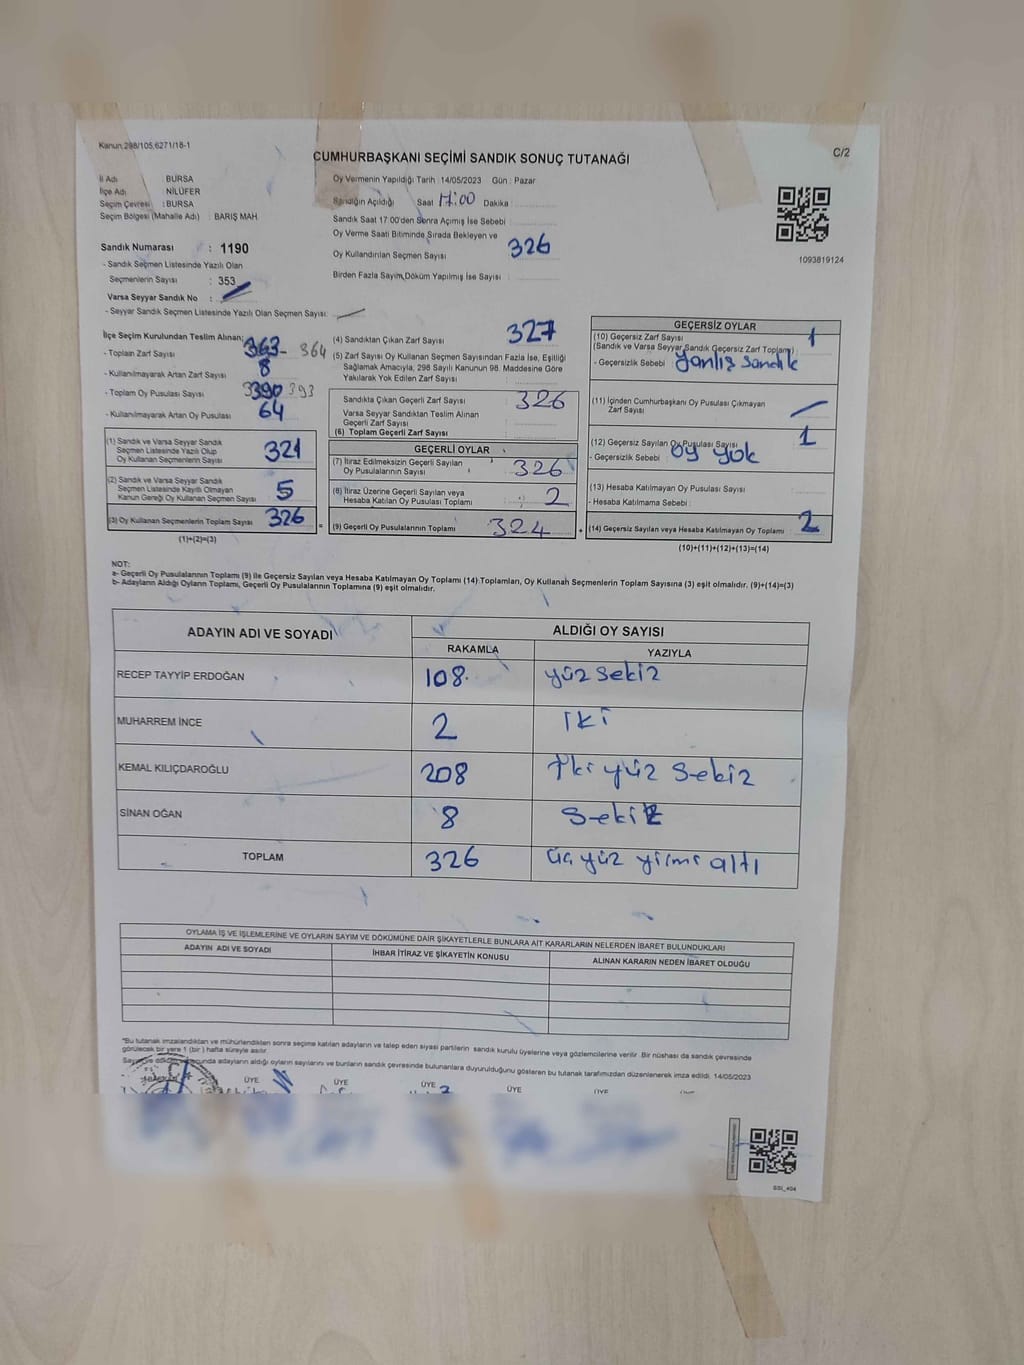 Kanun:298/105,6271/18-1
C/2
CUMHURBAŞKANI SEÇİMİ SANDIK SONUÇ TUTANAĞI
İl Adı : BURSA
İlçe Adı : NİLÜFER
Seçim Çevresi : BURSA
Seçim Bölgesi (Mahalle Adı) : BARIŞ MAH
Sandık Numarası : 1190
- Sandık Seçmen Listesinde Yazılı Olan
Seçmenlerin Sayısı : 353
Varsa Seyyar Sandık No :
- Seyyar Sandık Seçmen Listesinde Yazılı Olan Seçmen Sayısı:
Oy Vermenin Yapıldığı Tarih : 14/05/2023 Gün : Pazar
Sandığın Açıldığı Saat 17:00 Dakika :
Sandık Saat 17:00'den Sonra Açılmış İse Sebebi :
Oy Verme Saati Bitiminde Sırada Bekleyen ve
Oy Kullandırılan Seçmen Sayısı : 326
Birden Fazla Sayım Döküm Yapılmış İse Sayısı :
1093819124
İlçe Seçim Kurulundan Teslim Alınan;
- Toplam Zarf Sayısı 363 - 364
- Kullanılmayarak Artan Zarf Sayısı : 8
- Toplam Oy Pusulası Sayısı 390 393
- Kullanılmayarak Artan Oy Pusulası : 64
(1) Sandık ve Varsa Seyyar Sandık
Seçmen Listesinde Yazılı Olup
Oy Kullanan Seçmenlerin Sayısı : 321
(2) Sandık ve Varsa Seyyar Sandık
Seçmen Listesinde Kayıtlı Olmayan
Kanun Gereği Oy Kullanan Seçmen Sayısı : 5
(3) Oy Kullanan Seçmenlerin Toplam Sayısı : 326
(1)+(2)=(3)
(4) Sandıktan Çıkan Zarf Sayısı : 327
(5) Zarf Sayısı Oy Kullanan Seçmen Sayısından Fazla İse, Eşitliği
Sağlamak Amacıyla, 298 Sayılı Kanunun 98. Maddesine Göre
Yakılarak Yok Edilen Zarf Sayısı :
Sandıkta Çıkan Geçerli Zarf Sayısı : 326
Varsa Seyyar Sandıktan Teslim Alınan
Geçerli Zarf Sayısı :
(6) Toplam Geçerli Zarf Sayısı :
GEÇERLİ OYLAR
(7) İtiraz Edilmeksizin Geçerli Sayılan
Oy Pusulalarının Sayısı : 326
(8) İtiraz Üzerine Geçerli Sayılan veya
Hesaba Katılan Oy Pusulası Toplamı : 2
(9) Geçerli Oy Pusulalarının Toplamı : 324
GEÇERSİZ OYLAR
(10) Geçersiz Zarf Sayısı
(Sandık ve Varsa Seyyar Sandık Geçersiz Zarf Toplamı) : 1
- Geçersizlik Sebebi : yanlış sandık
(11) İçinden Cumhurbaşkanı Oy Pusulası Çıkmayan
Zarf Sayısı :
(12) Geçersiz Sayılan Oy Pusulası Sayısı : 1
- Geçersizlik Sebebi : oy yok
(13) Hesaba Katılmayan Oy Pusulası Sayısı :
- Hesaba Katılmama Sebebi :
(14) Geçersiz Sayılan veya Hesaba Katılmayan Oy Toplamı : 2
(10)+(11)+(12)+(13)=(14)
NOT:
a- Geçerli Oy Pusulalarının Toplamı (9) ile Geçersiz Sayılan veya Hesaba Katılmayan Oy Toplamı (14) Toplamları, Oy Kullanan Seçmenlerin Toplam Sayısına (3) eşit olmalıdır. (9)+(14)=(3)
b- Adayların Aldığı Oyların Toplamı, Geçerli Oy Pusulalarının Toplamına (9) eşit olmalıdır.
ADAYIN ADI VE SOYADI ALDIĞI OY SAYISI
RAKAMLA YAZIYLA
RECEP TAYYİP ERDOĞAN 108 yüz sekiz
MUHARREM İNCE 2 iki
KEMAL KILIÇDAROĞLU 208 iki yüz sekiz
SİNAN OĞAN 8 sekiz
TOPLAM 326 üç yüz yirmi altı
OYLAMA İŞ VE İŞLEMLERİNE VE OYLARIN SAYIM VE DÖKÜMÜNE DAİR ŞİKAYETLERLE BUNLARA AİT KARARLARIN NELERDEN İBARET BULUNDUKLARI
ADAYIN ADI VE SOYADI İHBAR İTİRAZ VE ŞİKAYETİN KONUSU ALINAN KARARIN NEDEN İBARET OLDUĞU
*Bu tutanak imzalandıktan ve mühürlendikten sonra seçime katılan adayların ve talep eden siyasi partilerin sandık kurulu üyelerine veya gözlemcilerine verilir. Bir nüshası da sandık çevresinde
görülecek bir yere 1 (bir) hafta süreyle asılır.
Sayım ve döküm sonucunda adayların aldığı oyların sayılarını ve bunların sandık çevresinde bulunanlara duyurulduğunu gösteren bu tutanak tarafımızdan düzenlenerek imza edildi. 14/05/2023
ÜYE ÜYE ÜYE ÜYE ÜYE
SSİ_404